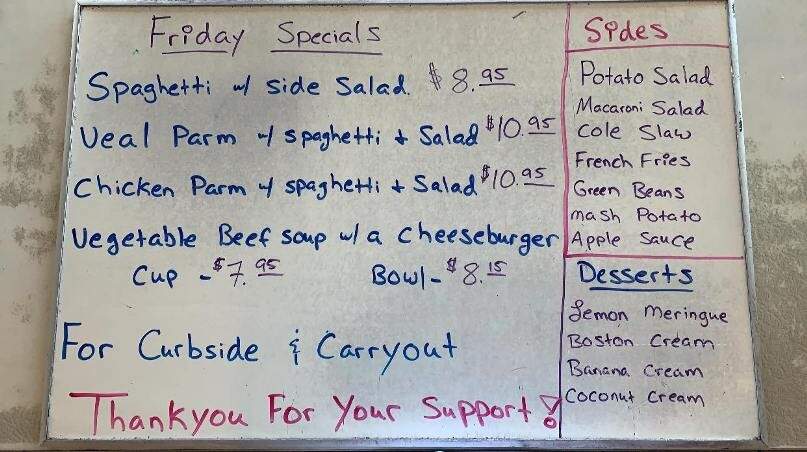 Friday Specials
Spaghetti w/ side Salad $8.95
Veal Parm w/ spaghetti + Salad $10.95
Chicken Parm w/ spaghetti + Salad $10.95
Vegetable Beef soup w/ a cheeseburger
Cup - $7.95 Bowl - $8.15
For Curbside & Carryout
Thankyou For Your Support!
Sides
Potato Salad
Macaroni Salad
Cole Slaw
French Fries
Green Beans
mash Potato
Apple Sauce
Desserts
Lemon Meringue
Boston Cream
Banana Cream
Coconut Cream